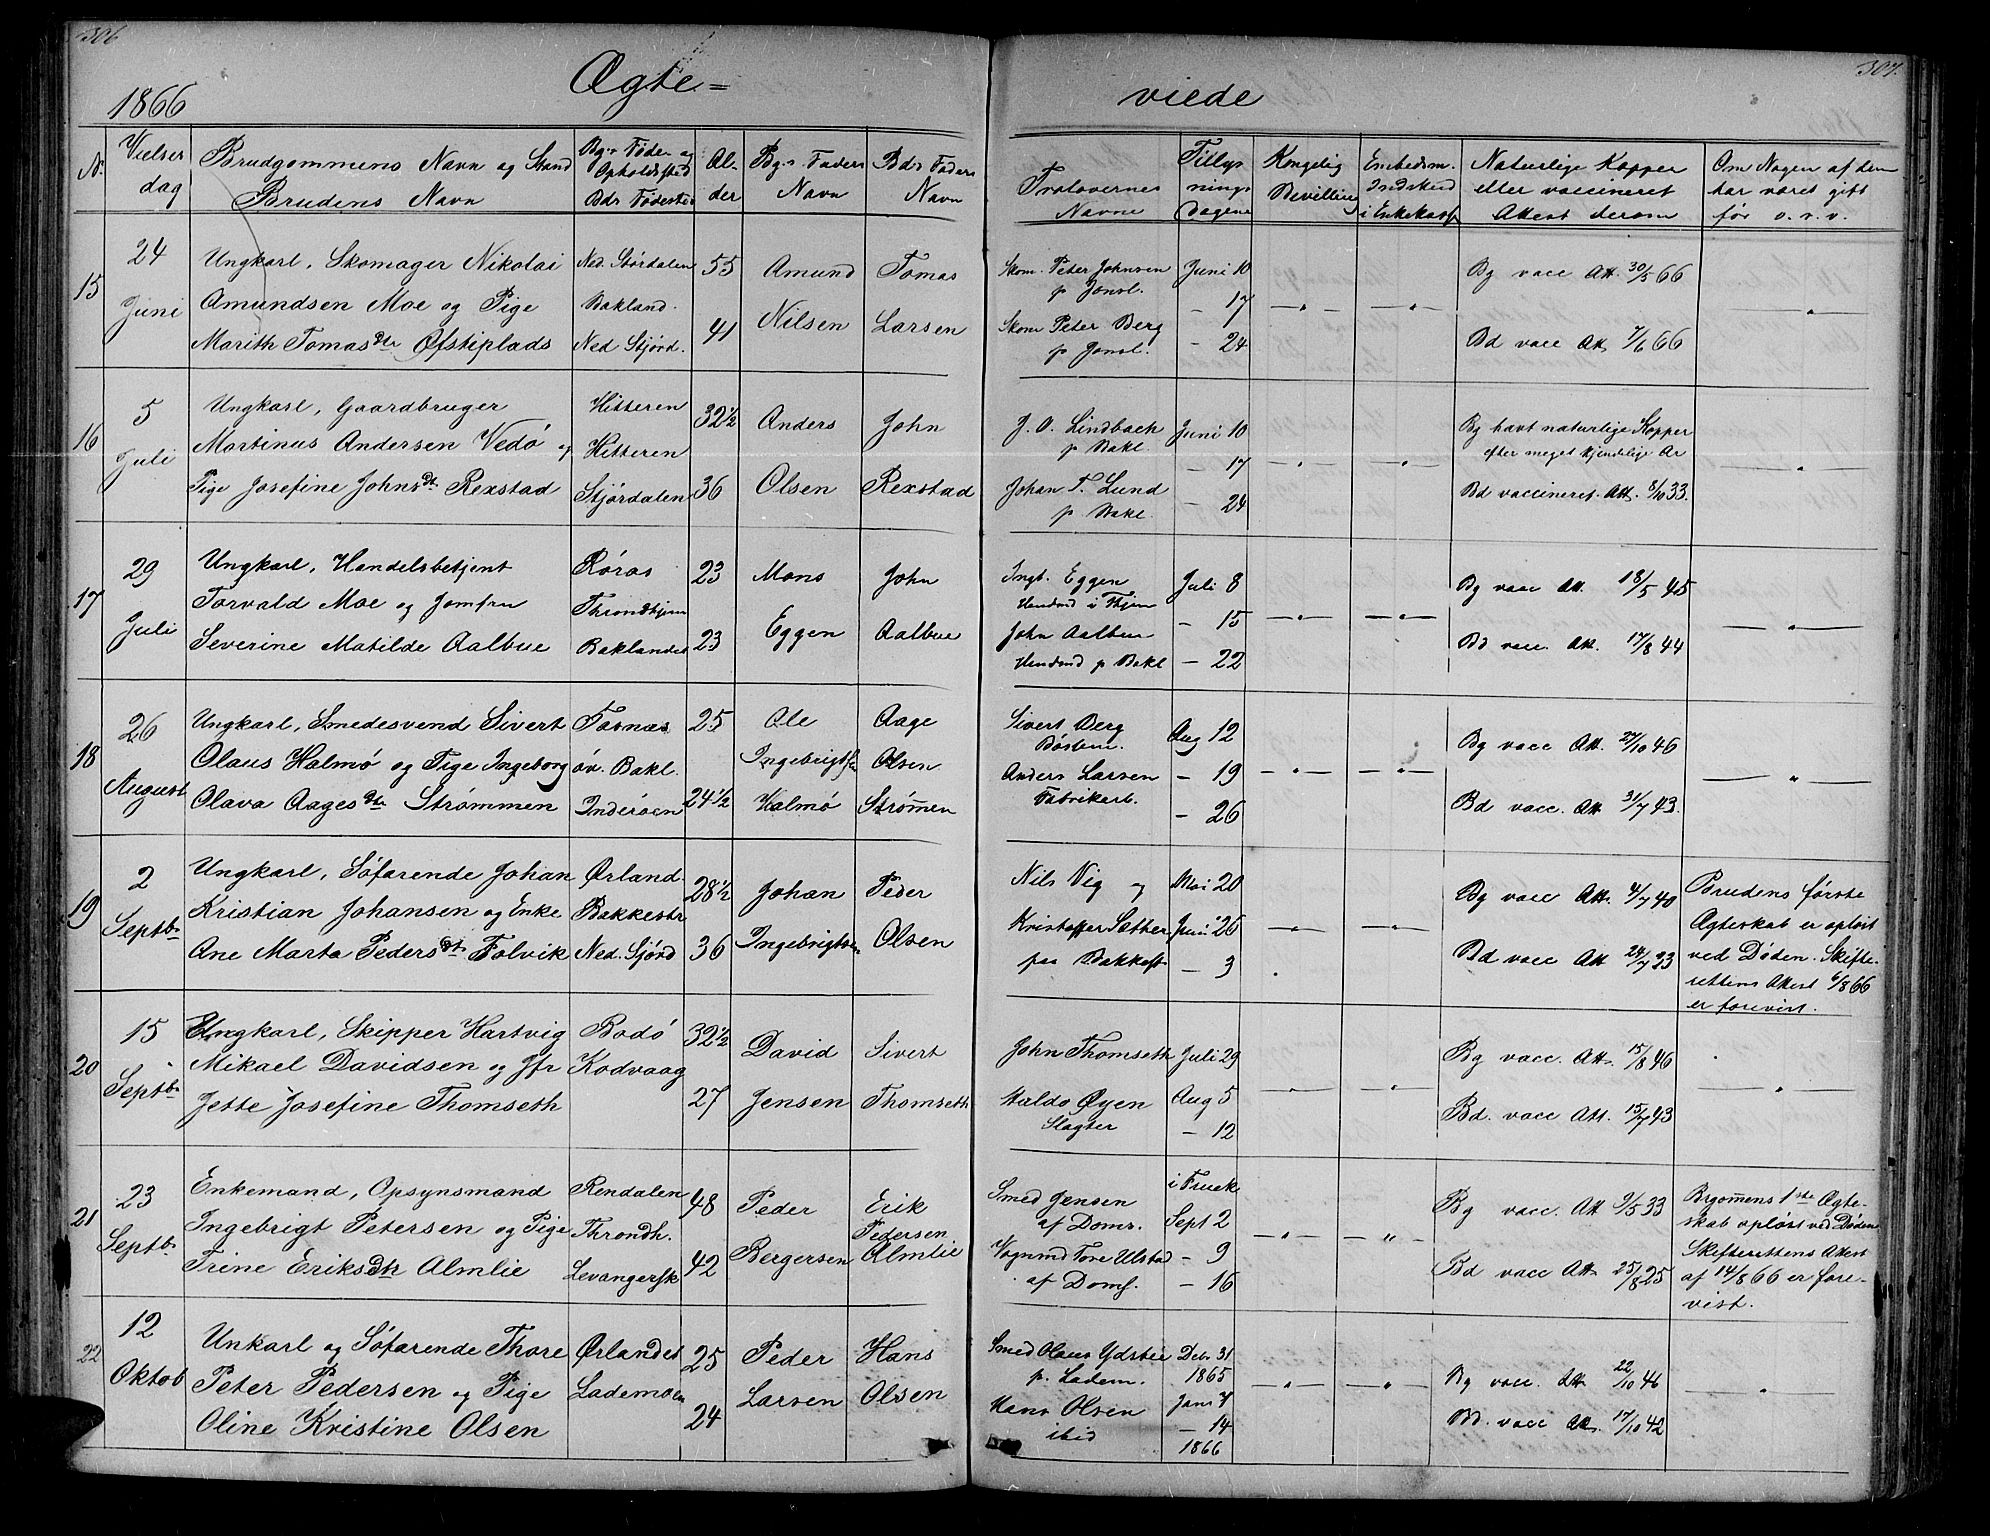 306
307.
1866
Ægte=
viede
N.
Vielses
dag
Brudgommens Navn og Stand
Brudens Navn
Bg.s Føde- og
Opholdssted
Bds Fødested
Al-
der
Bg.s Faders
Navn
Bds Faders
Navn
Trolovernes
Navne
Tillys
nings
dagene
Kongelig
Bevilling
Embedsm.
Indskud
i Enkekass
Naturlige Kopper
eller vaccineret
Attest derom
Om Nogen af dem
har været gift
før o. s. v.
15
24
Juni
Ungkarl, Skomager Nikolai
Amundsen Moe og Pige
Marith Tomasdtr Øfstiplads
Ned. Størdalen
Bakland.
Ned Stjørd.
55
41
Amund
Nilsen
Tomas
Larsen
Skom. Peter Johnsen
p Jonsl.
Skom Peter Berg
p Jonsl.
Juni 10
— 17
— 24
— " —
— " —
Bg vacc Att. 30/5 66
Bd vacc Att 7/6 66
— " —
16
5
Juli
Ungkarl, Gaardbruger
Martinus Andersen Vedø og
Pige Josefine Johnsdt Rexstad
Hitteren
Hitteren
Stjørdalen
32½
36
Anders
Olsen
John
Rexstad
J. O. Lindbach
p Bakl.
Johan T. Lund
p Bakl.
Juni 10
— 17
— 24
— " —
— " —
Bg havt naturlige Kopper
efter meget kjendelige Ar
Bd vaccineret. Att. 8/10 33.
— " —
17
29
Juli
Ungkarl, Handelsbetjent
Torvald Moe og Jomfru
Severine Matilde Aalbue
Røros
Throndhjem
Baklandet
23
23
Mons
Eggen
John
Aalbue
Ingb. Eggen
Handmd i Thjem
John Aalbue
Handmd p Bakl
Juli 8
— 15
— 22
— " —
— " —
Bg vacc Att. 18/5 45
Bd vacc. Att. 17/8 44
— " —
18
26
August
Ungkarl, Smedesvend Sivert
Olaus Halmø og Pige Ingeborg
Olava Aagesdtr Strømmen
Fosnæs
øv. Bakl.
Inderøen
25
24½
Ole
Ingebrigtsen
Halmø
Aage
Olsen
Strømen
Sivert Berg
Anders Larsen
Fabrikarb.
Aug 12
— 19
— 26
— " —
— " —
Bg vacc Att. 27/10 46
Bd vacc. Att 31/7 43.
— " —
19
2
Septbr
Ungkarl, Søfarende Johan
Kristian Johansen og Enke
Ane Marta Pedersdt Folvik
Ørland.
Bakkestr
Ned. Sjørd
28½
36
Johan
Ingebrigtsen
Peder
Olsen
Nils Vig og
Kristoffer Sæther
paa Bakkestr
Mai 20
Juni 26
— 3
— " —
— " —
Bg vacc Att. 4/7 40
Bd vacc Att 24/7 33
Brudens første
Ægteskab er opløst
ved Døden. Skifte-
rettens Attest 6/8 66
er forevist.
20
15
Septbr
Ungkarl, Skipper Hartvig
Mikael Davidsen og Jfr
Jette Josefine Thomseth
Bodø
Kodvaag
32½
27
David
Jensen
Sivert
Thomseth
John Thomseth
Haldo Øyen
Slagter
Juli 29
Aug 5
— 12
— " —
— " —
Bg vacc. Att. 15/8 46
Bd. vacc Att. 15/7 43
— " —
21
23
Septbr
Enkemand, Opsynsmand
Ingebrigt Petersen og Pige
Trine Eriksdtr Almlie
Rendalen
Throndh.
Levangersk
48
42
Peder
Bergersen
Erik
Pedersen
Almlie
Smed Jensen
af Doms.
Vognmd Tore Ulstad
af Doms.
i Fruek
Sept 2
— 9
— 16
— " —
— " —
Bg vacc. Att 9/5 33
Bd vacc Att 25/8 25
Brgomens 1ste Ægte-
skab opløst ved Døden
Skifterettens Attest
af 14/8 66 er fore-
vist.
22
12
Oktob
Unkarl og Søfarende Thore
Peter Pedersen og Pige
Oline Kristine Olsen
Ørlandet
Lademoen
25
24
Peder
Larsen
Hans
Olsen
Smed Olaus Ydstie
p. Ladem.
Hans Olsen
ibid
Debr 31
1865
Jan 7
— 14
1866
— " —
— " —
Bg vacc. Att 22/10 46
Bd. vacc Att. 17/10 42
— " —